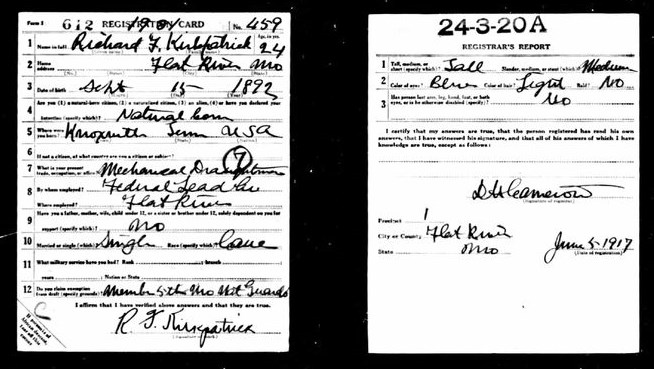 Form 1 612 REGISTRATION CARD No. 459
1 Name in full Richard F. Kirkpatrick Age, in yrs. 24
2 Home address Flat River Mo
3 Date of birth Sept 15 1892
Are you (1) a natural-born citizen, (2) a naturalized citizen, (3) an alien, (4) or have you declared your
4 intention (specify which)? Natural born
5 Where were you born? Knoxville Tenn USA
6 If not a citizen, of what country are you a citizen or subject?
7 What is your present trade, occupation, or office? Mechanical Draughtsman 7
8 By whom employed? Federal Lead Co
Where employed? Flat River
Have you a father, mother, wife, child under 12, or a sister or brother under 12, solely dependent on you for
9 support (specify which)? No
10 Married or single (which)? Single Race (specify which)?
11 What military service have you had? Rank branch
years Nation or State
12 Do you claim exemption from draft (specify grounds)? Member 5th Mo Nat Guards
I affirm that I have verified above answers and that they are true.
R. F. Kirkpatrick
(Signature or mark)
24-3-20A
REGISTRAR'S REPORT
1 Tall, medium, or short (specify which)? Tall Slender, medium, or stout (which)? Medium
2 Color of eyes? Blue Color of hair? Light Bald? No
3 Has person lost arm, leg, hand, foot, or both eyes, or is he otherwise disabled (specify)? No
I certify that my answers are true, that the person registered has read his own
answers, that I have witnessed his signature, and that all of his answers of which I have
knowledge are true, except as follows:
D H Cameron
(Signature of registrar)
Precinct 1
City or County Flat River
State Mo
June 5-1917
(Date of registration)